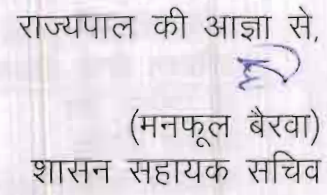 राज्यपाल की आज्ञा से,
(मनफूल बैरवा)
शासन सहायक सचिव